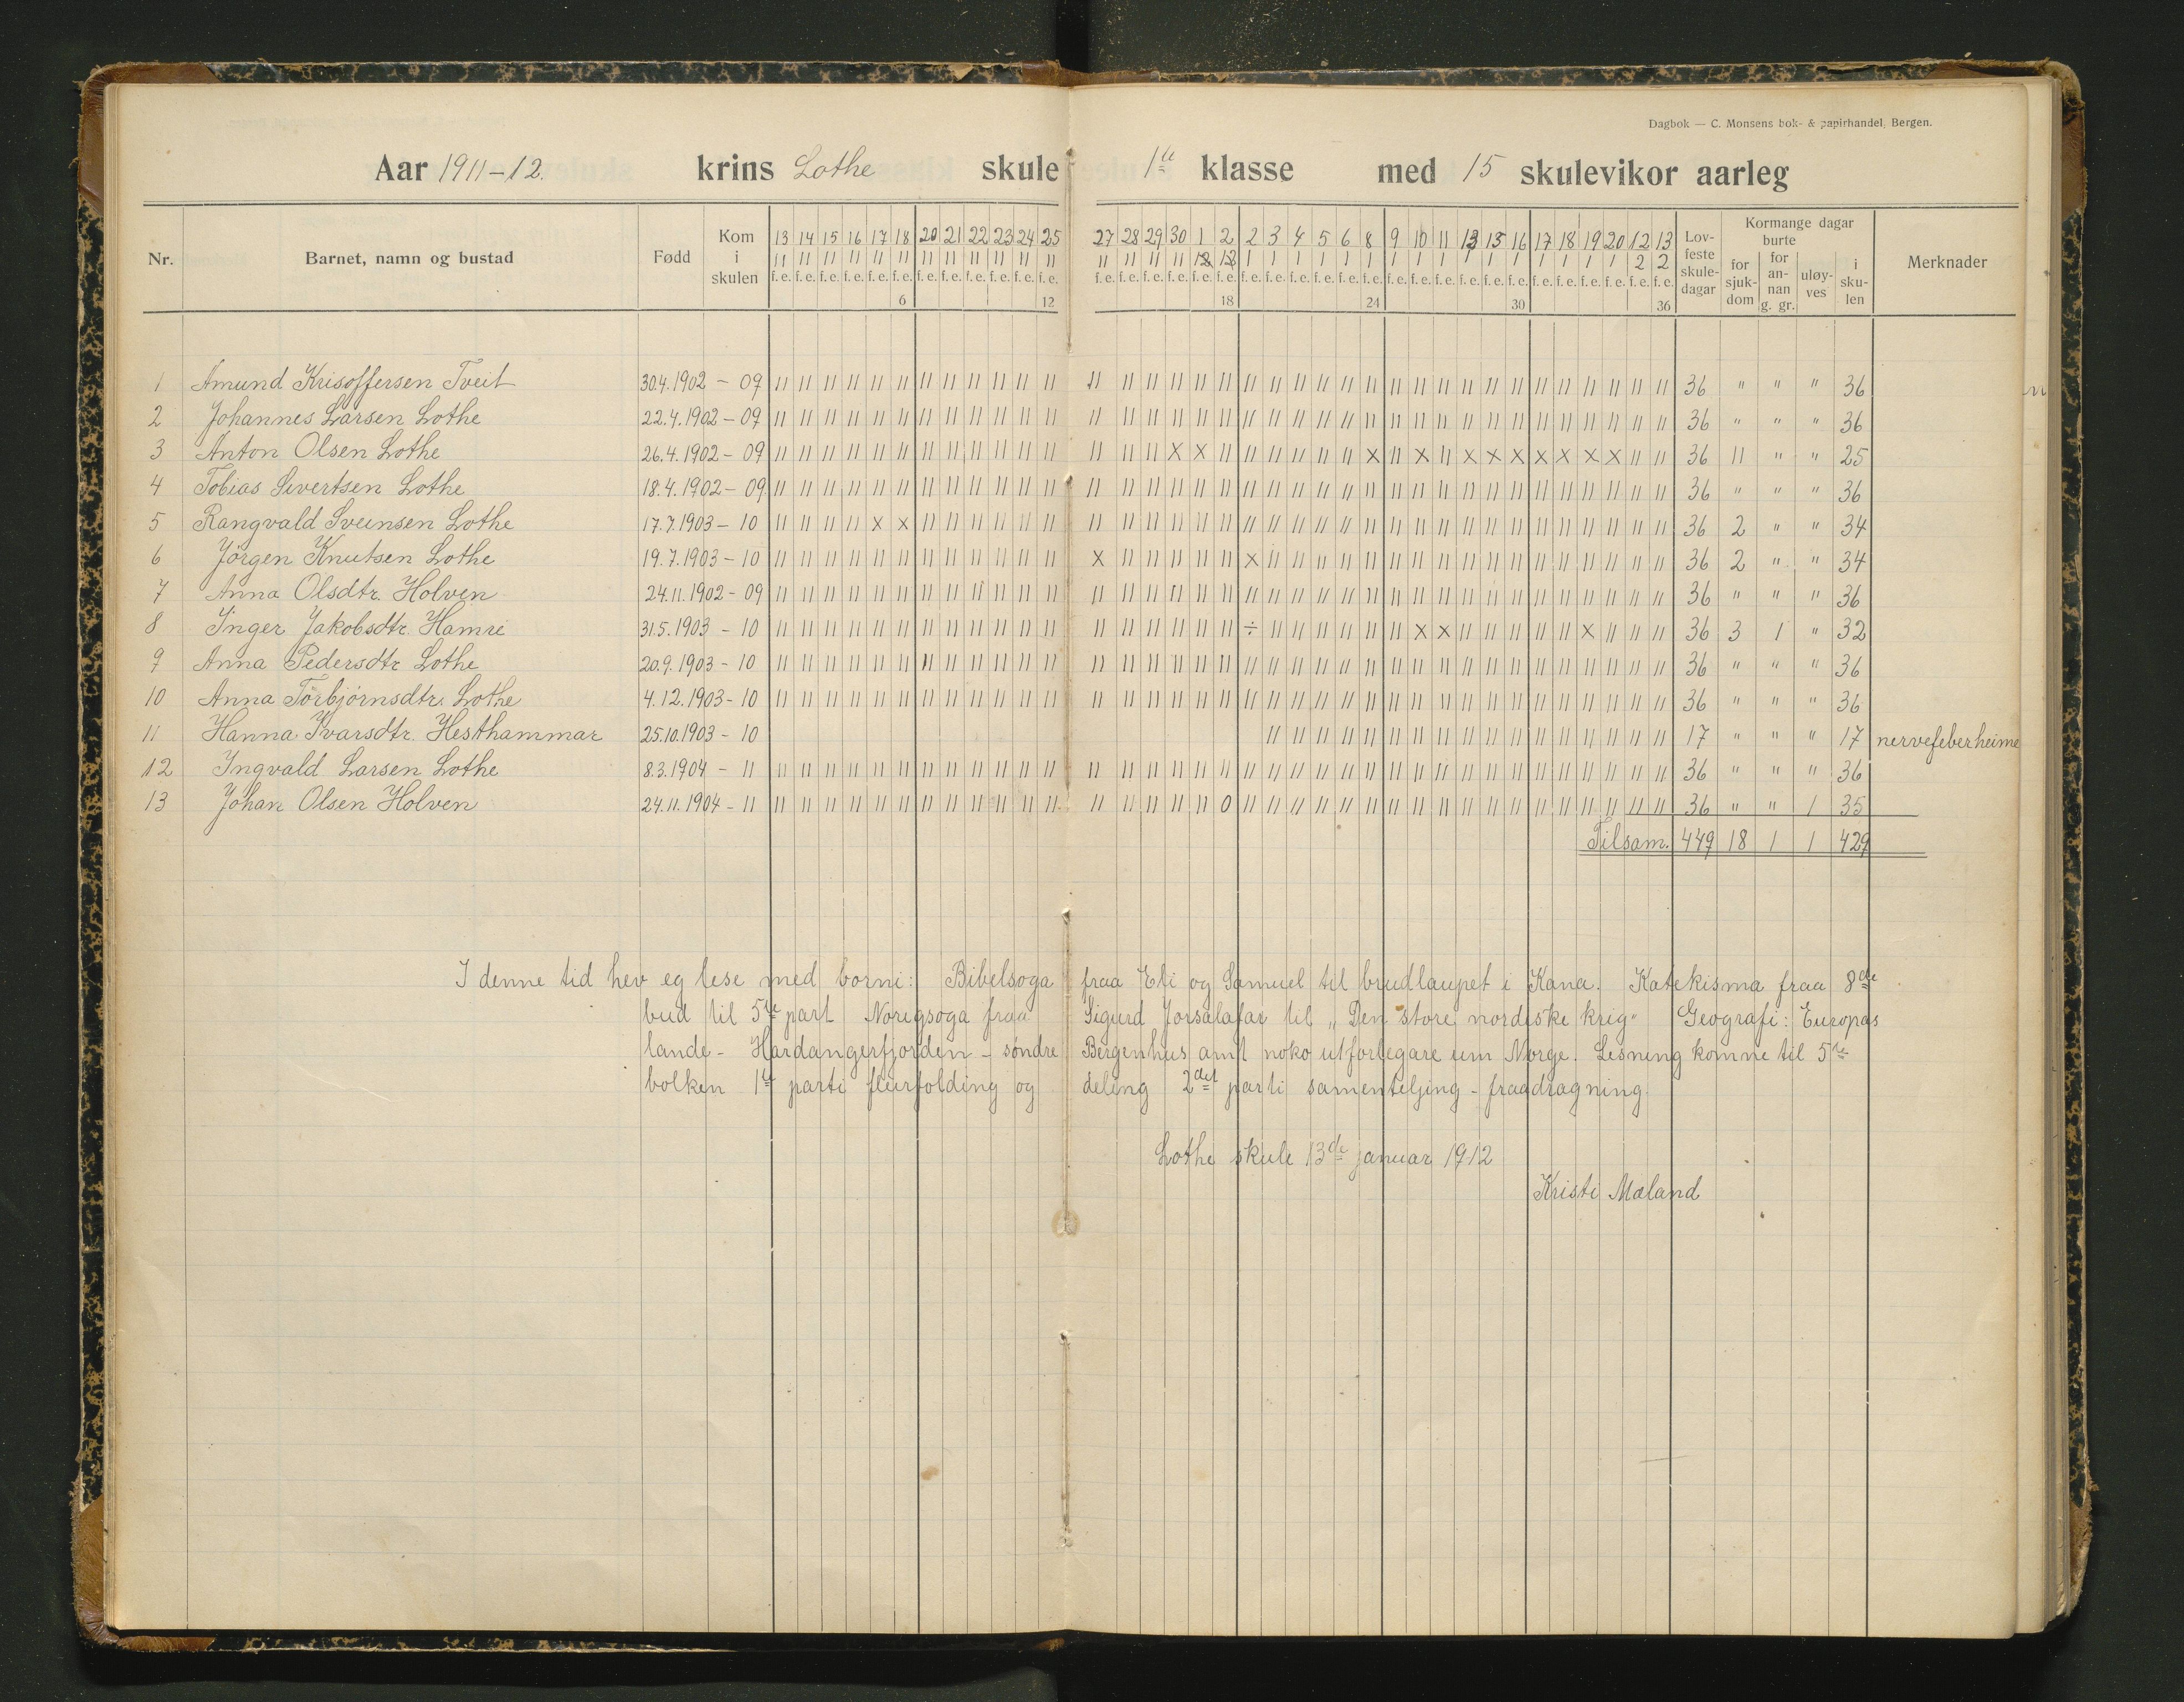 Dagbok — C. Monsens bok- & papirhandel, Bergen.
Aar 1911-12. krins Lothe skule 1ste klasse med 15 skulevikor aarleg
Nr. Barnet, namn og bustad Født Kom i skulen 13 14 15 16 17 18 20 21 22 23 24 25 27 28 29 30 1 2 2 3 4 5 6 8 9 10 11 13 15 16 17 18 19 20 12 13 Lovfeste skuledagar Kormange dagar burte for sjukdom for annan g. gr. uløyves i skulen Merknader
11 11 11 11 11 11 11 11 11 11 11 11 11 11 11 11 12 12 1 1 1 1 1 1 1 1 1 1 1 1 1 1 1 1 2 2
f. e. f. e. f. e. f. e. f. e. f. e. f. e. f. e. f. e. f. e. f. e. f. e. f. e. f. e. f. e. f. e. f. e. f. e. f. e. f. e. f. e. f. e. f. e. f. e. f. e. f. e. f. e. f. e. f. e. f. e. f. e. f. e. f. e. f. e. f. e. f. e.
6 12 18 24 30 36
1 Amund Krisoffersen Tveit 30.4.1902 - 09 11 11 11 11 11 11 11 11 11 11 11 11 11 11 11 11 11 11 11 11 11 11 11 11 11 11 11 11 11 11 11 11 11 11 11 11 36 " " " 36
2 Johannes Larsen Lothe 22.4.1902 - 09 11 11 11 11 11 11 11 11 11 11 11 11 11 11 11 11 11 11 11 11 11 11 11 11 11 11 11 11 11 11 11 11 11 11 11 11 36 " " " 36
3 Anton Olsen Lothe 26.4.1902 - 09 11 11 11 11 11 11 11 11 11 11 11 11 11 11 11 x x 11 11 11 11 11 11 x 11 x 11 x x x x x x x 11 11 36 11 " " 25
4 Tobias Sivertsen Lothe 18.4.1902 - 09 11 11 11 11 11 11 11 11 11 11 11 11 11 11 11 11 11 11 11 11 11 11 11 11 11 11 11 11 11 11 11 11 11 11 11 11 36 " " " 36
5 Rangvald Sveinsen Lothe 17.7.1903 - 10 11 11 11 11 x x 11 11 11 11 11 11 11 11 11 11 11 11 11 11 11 11 11 11 11 11 11 11 11 11 11 11 11 11 11 11 36 2 " " 34
6 Jörgen Knutsen Lothe 19.7.1903 - 10 11 11 11 11 11 11 11 11 11 11 11 11 x 11 11 11 11 11 x 11 11 11 11 11 11 11 11 11 11 11 11 11 11 11 11 11 36 2 " " 34
7 Anna Olsdtr. Holven 24.11.1902 - 09 11 11 11 11 11 11 11 11 11 11 11 11 11 11 11 11 11 11 11 11 11 11 11 11 11 11 11 11 11 11 11 11 11 11 11 11 36 " " " 36
8 Inger Jakobsdtr. Hamre 31.5.1903 - 10 11 11 11 11 11 11 11 11 11 11 11 11 11 11 11 11 11 11 ÷ 11 11 11 11 11 11 x x 11 11 11 11 11 x 11 11 11 36 3 1 " 32
9 Anna Pedersdtr Lothe 20.9.1903 - 10 11 11 11 11 11 11 11 11 11 11 11 11 11 11 11 11 11 11 11 11 11 11 11 11 11 11 11 11 11 11 11 11 11 11 11 11 36 " " " 36
10 Anna Törbjörnsdtr. Lothe 4.12.1903 - 10 11 11 11 11 11 11 11 11 11 11 11 11 11 11 11 11 11 11 11 11 11 11 11 11 11 11 11 11 11 11 11 11 11 11 11 11 36 " " " 36
11 Hanna Ivarsdtr. Hesthammar 25.10.1903 - 10 11 11 11 11 11 11 11 11 11 11 11 11 11 11 11 11 11 17 " " " 17 nervefeber heime
12 Ingvald Larsen Lothe 8.3.1904 - 11 11 11 11 11 11 11 11 11 11 11 11 11 11 11 11 11 11 11 11 11 11 11 11 11 11 11 11 11 11 11 11 11 11 11 11 11 36 " " " 36
13 Johan Olsen Holven 24.11.1904 - 11 11 11 11 11 11 11 11 11 11 11 11 11 11 11 11 11 11 0 11 11 11 11 11 11 11 11 11 11 11 11 11 11 11 11 11 11 36 " " 1 35
Tilsam. 449 18 1 1 429
I denne tid hev eg lese med borni: Bibelsoga fraa Eli og Samuel til brudlaupet i Kana. Katekisma fraa 8de
bud til 5te part Norigsoga fraa Sigurd Jorsalafar til „Den store nordiske krig" Geografi: Europas
lande - Hardangerfjorden - söndre Bergenhus amt noko utforlegare um Norge. Lesning komne til 5te
bolken 1ste parti fleirfolding og deling 2det parti samanteljing - fraadragning.
Lothe skule 13de januar 1912
Kristi Mæland